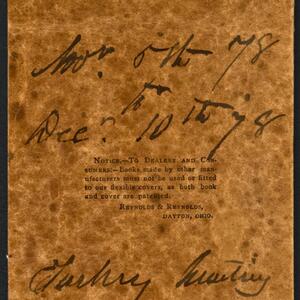 Novr 5th 78
to
Decr 10th 78
NOTICE.—TO DEALERS AND CON-
SUMERS:—Books made by other man-
ufacturers must not be used or fitted
to our flexible covers, as both book
and cover are patented.
REYNOLDS & REYNOLDS,
DAYTON, OHIO.